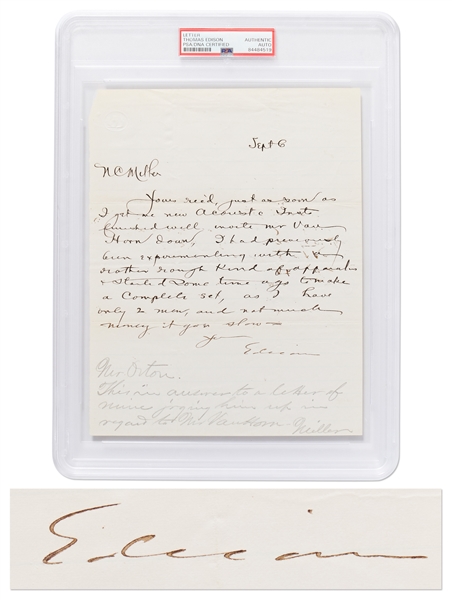 LETTER
THOMAS EDISON
PSA/DNA CERTIFIED
AUTHENTIC
AUTO
PSA
Sept 6
N C Miller
Yours rec'd, just as soon as
I get me new Acoustic Insts
finished will invite Mr Van
Horn down, I had previously
been experimenting with a
rather rough kind of apparatus
& started some time ago to make
a complete set, as I have
only 2 men, and not much
money it goes slow—
Yr
Edison
Mr Orton.
This is in answer to a letter of
mine jogging him up in
regard to Mr Van Horn. Miller
Edison